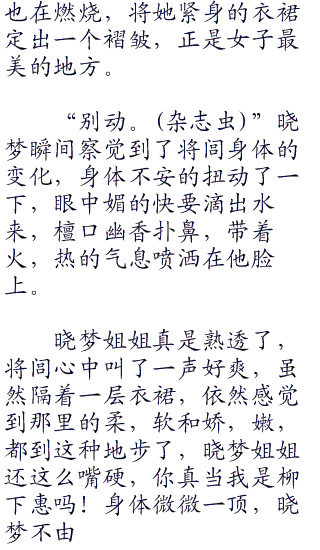 也在燃烧，将她紧身的衣裙
定出一个褶皱，正是女子最
美的地方。
“别动。(杂志虫)”晓
梦瞬间察觉到了将闾身体的
变化，身体不安的扭动了一
下，眼中媚的快要滴出水
来，檀口幽香扑鼻，带着
火，热的气息喷洒在他脸
上。
晓梦姐姐真是熟透了，
将闾心中叫了一声好爽，虽
然隔着一层衣裙，依然感觉
到那里的柔，软和娇，嫩，
都到这种地步了，晓梦姐姐
还这么嘴硬，你真当我是柳
下惠吗！身体微微一顶，晓
梦不由